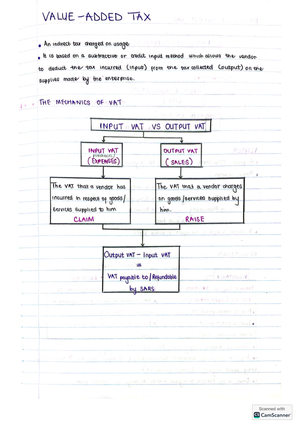 VALUE-ADDED TAX
• An indirect tax charged on usage
• It is based on a subtractive or credit input method which allows the vendor
to deduct the tax incurred (input) from the tax collected (output) on the
supplies made by the enterprise.
- THE MECHANICS OF VAT
INPUT VAT VS OUTPUT VAT
INPUT VAT
(EXPENSES)
OUTPUT VAT
(SALES)
The VAT that a vendor has
incurred in respect of goods/
services supplied to him
CLAIM
The VAT that a vendor charges
on goods/services supplied by
him.
RAISE
Output VAT - Input VAT
=
VAT payable to/Refundable
by SARS
Scanned with
CS CamScanner